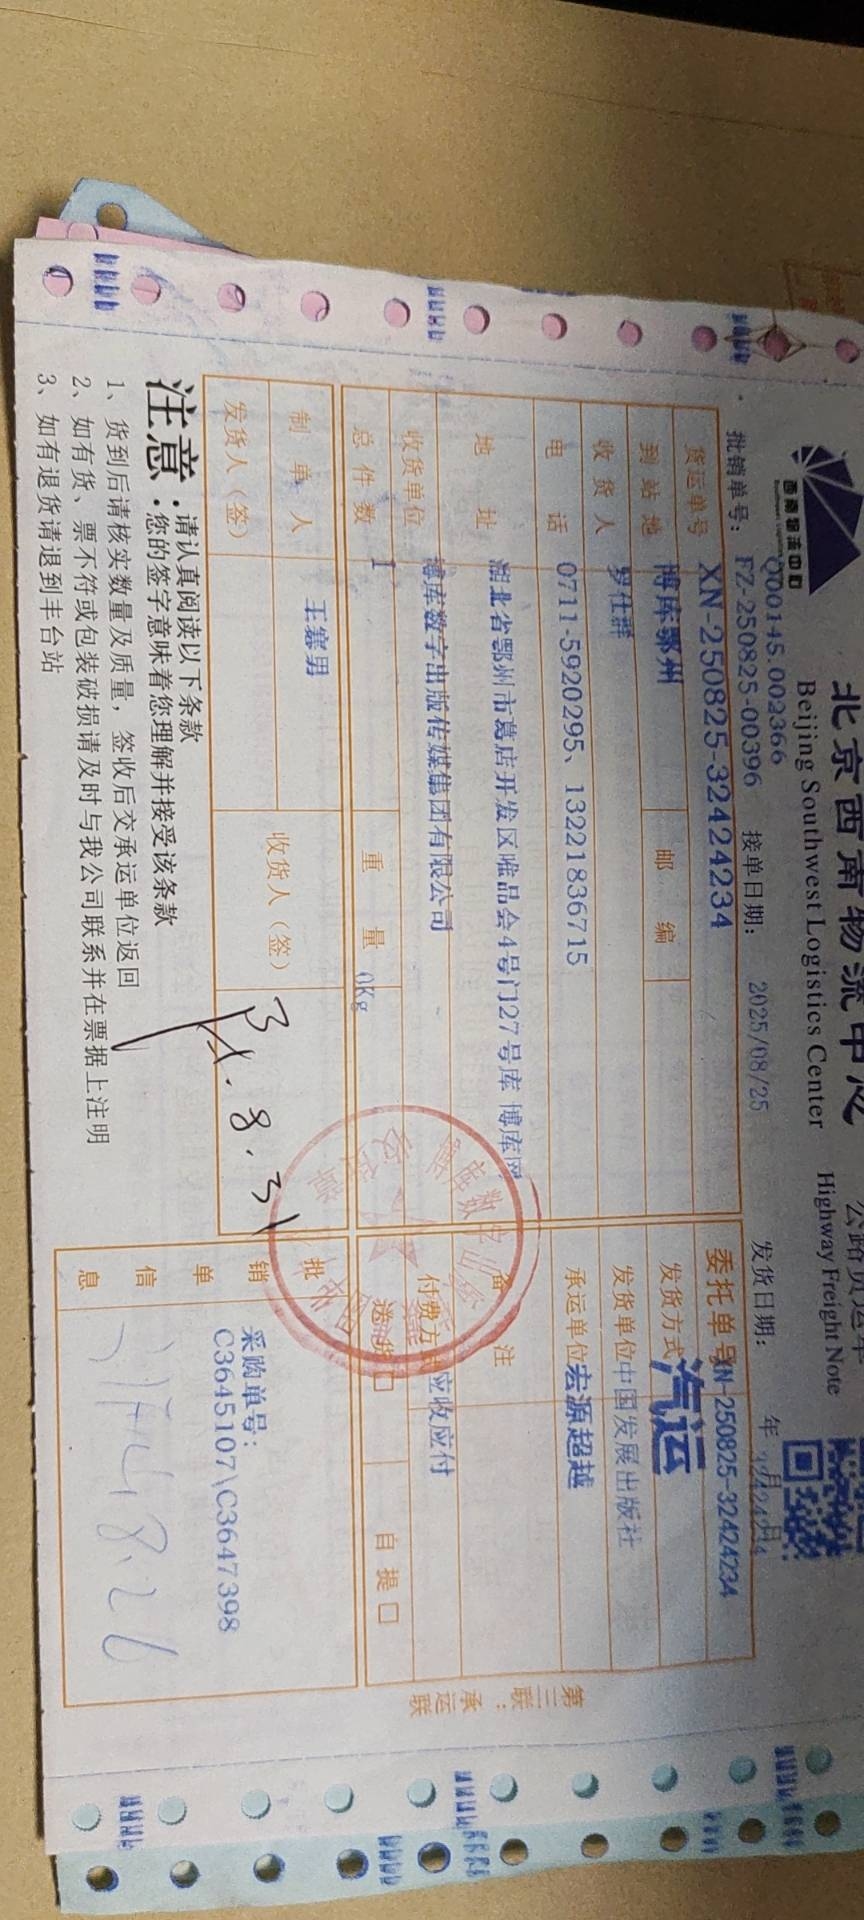 北京西南物流中心 公路货运单
Beijing Southwest Logistics Center Highway Freight Note
西南物流中心
000145.002366
批销单号: FZ-250825-00396 接单日期: 2025/08/25 发货日期: 年 月 日
32424234
货运单号 XN-250825-32424234 委托单号 XN-250825-32424234
到站地 博库鄂州 邮编 发货方式 汽运
收货人 罗仕群 发货单位 中国发展出版社
电话 0711-5920295、13221836715 承运单位 宏源超越
地址 湖北省鄂州市葛店开发区唯品会4号门27号库 博库网 备注
收货单位 博库数字出版传媒集团有限公司 付费方式 应收应付
总件数 1 重量 0Kg 送货 自提
制单人 王赛男 收货人(签) 8.31
发货人(签)
批销单信息 采购单号:
C3645107\C3647398
8.26
第三联:承运联
注意:请认真阅读以下条款
您的签字意味着您理解并接受该条款
1、货到后请核实数量及质量,签收后交承运单位返回
2、如有货、票不符或包装破损请及时与我公司联系并在票据上注明
3、如有退货请退到丰台站